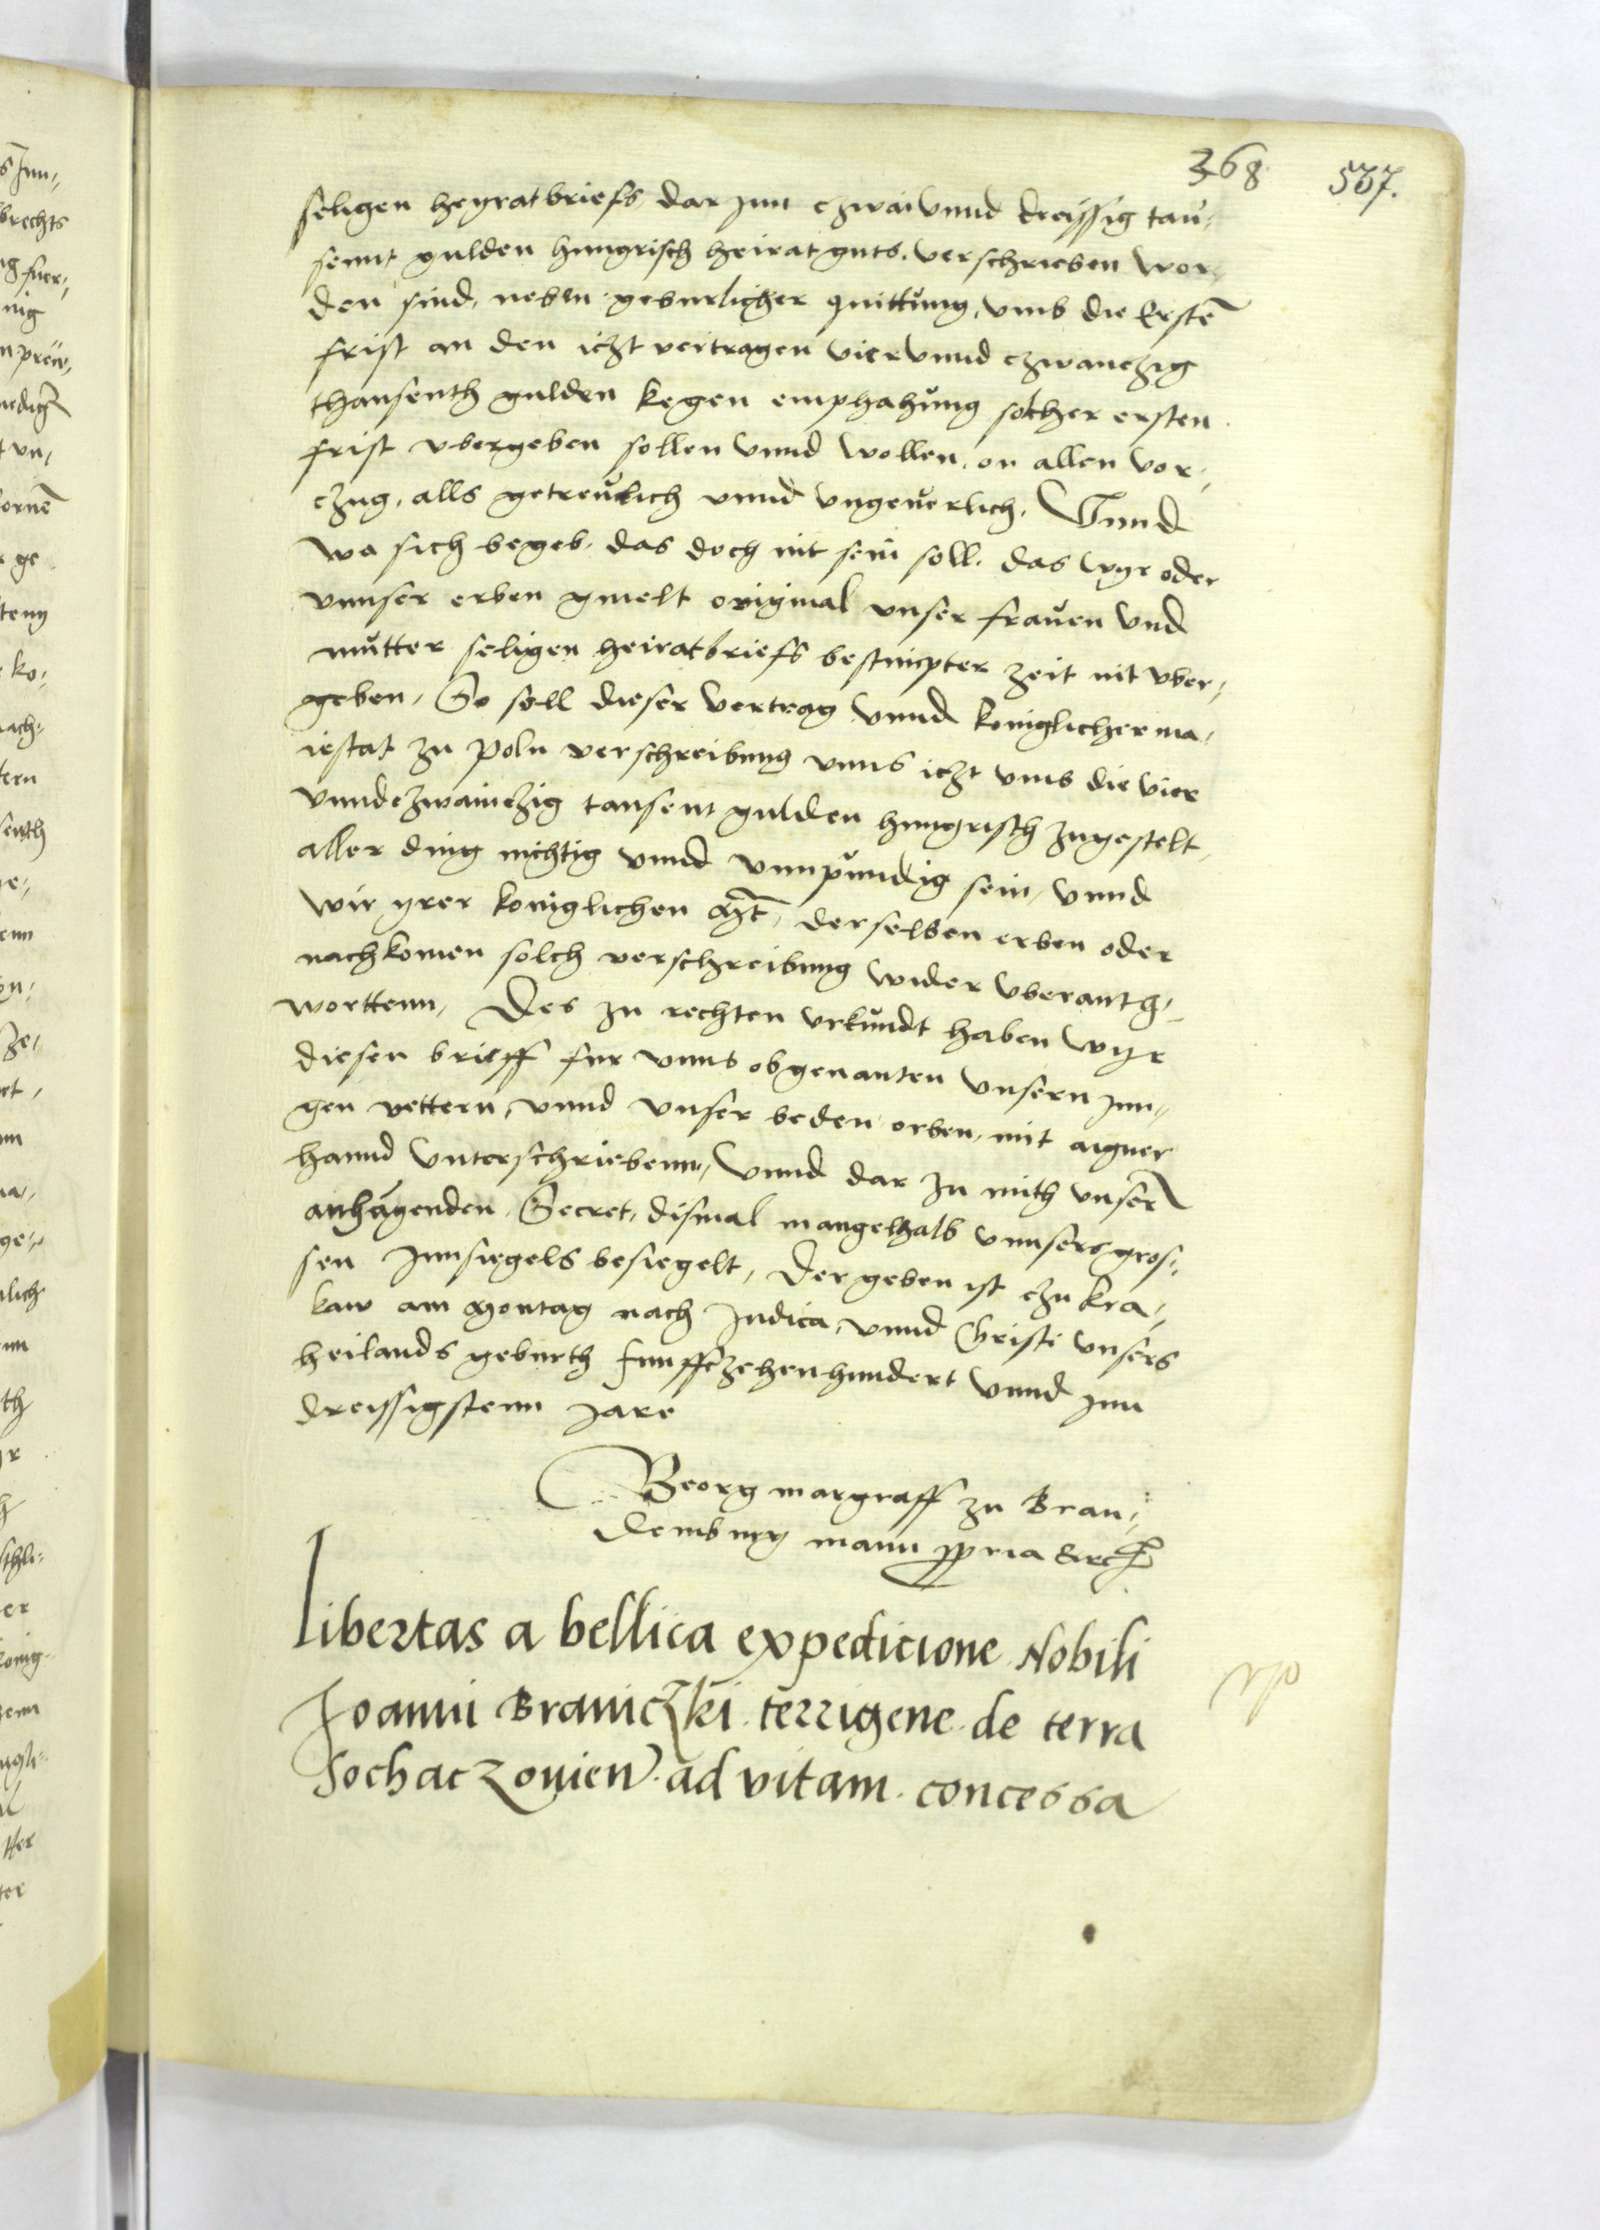 368. 537.
seligen heyratbriefs, dar jnn czwai vnnd dreissig tau-
sennt gulden hungrisch heirat guts. verschrieben wor-
den sind, neben geburlicher quittung, vmb die Ersten
frist an den iczt vertragen vier vnnd czwanczig
thausenth gulden kegen emphahung solcher ersten
frist vbergeben sollen vnnd wollen, on allen vor-
czug, alls getreulich vnnd vngeuerlich. Vnnd
wa sich begeb. das doch nit sein soll. das wyr oder
vnnser erben gmelt original vnser frauen vnd
mutter seligen heiratbriefs bestimpter zeit nit vber-
geben. So soll dieser vertrag vnnd koniglicher ma-
iestat zu poln verschreibung vnns iczt vmb die vier
vnndczwainczig tausent gulden hungrisch zugestelt,
aller ding nichtig vnnd vnnpundig sein, vnnd
wir yrer koniglichen Mt. derselben erben oder
nachkomen solch verschreibung wider vberantg-
worttenn, Des zu rechten vrkundt haben wyr
diesen brieff fur vnns obgenanten vnsern jun-
gen vettern, vnnd vnser beden erben, mit aigner
hannd vnterschriebenn, vnnd dar zu mith vnserm
anhagenden Secret, dismal mangelhalb vnnsers gros-
sen Innsiegels besiegelt, Der geben ist czu kra-
kaw am Montag nach Judica, vnnd Christi vnsers
heilands geburth funffczehenhundert vnnd jnn
dreissigstenn jare
Georg margraff zu Bran-
demburg manu ppria &c
libertas a bellica expedicione Nobili
Joanni Braniczki terrigene de terra
Sochaczouien. ad vitam concessa